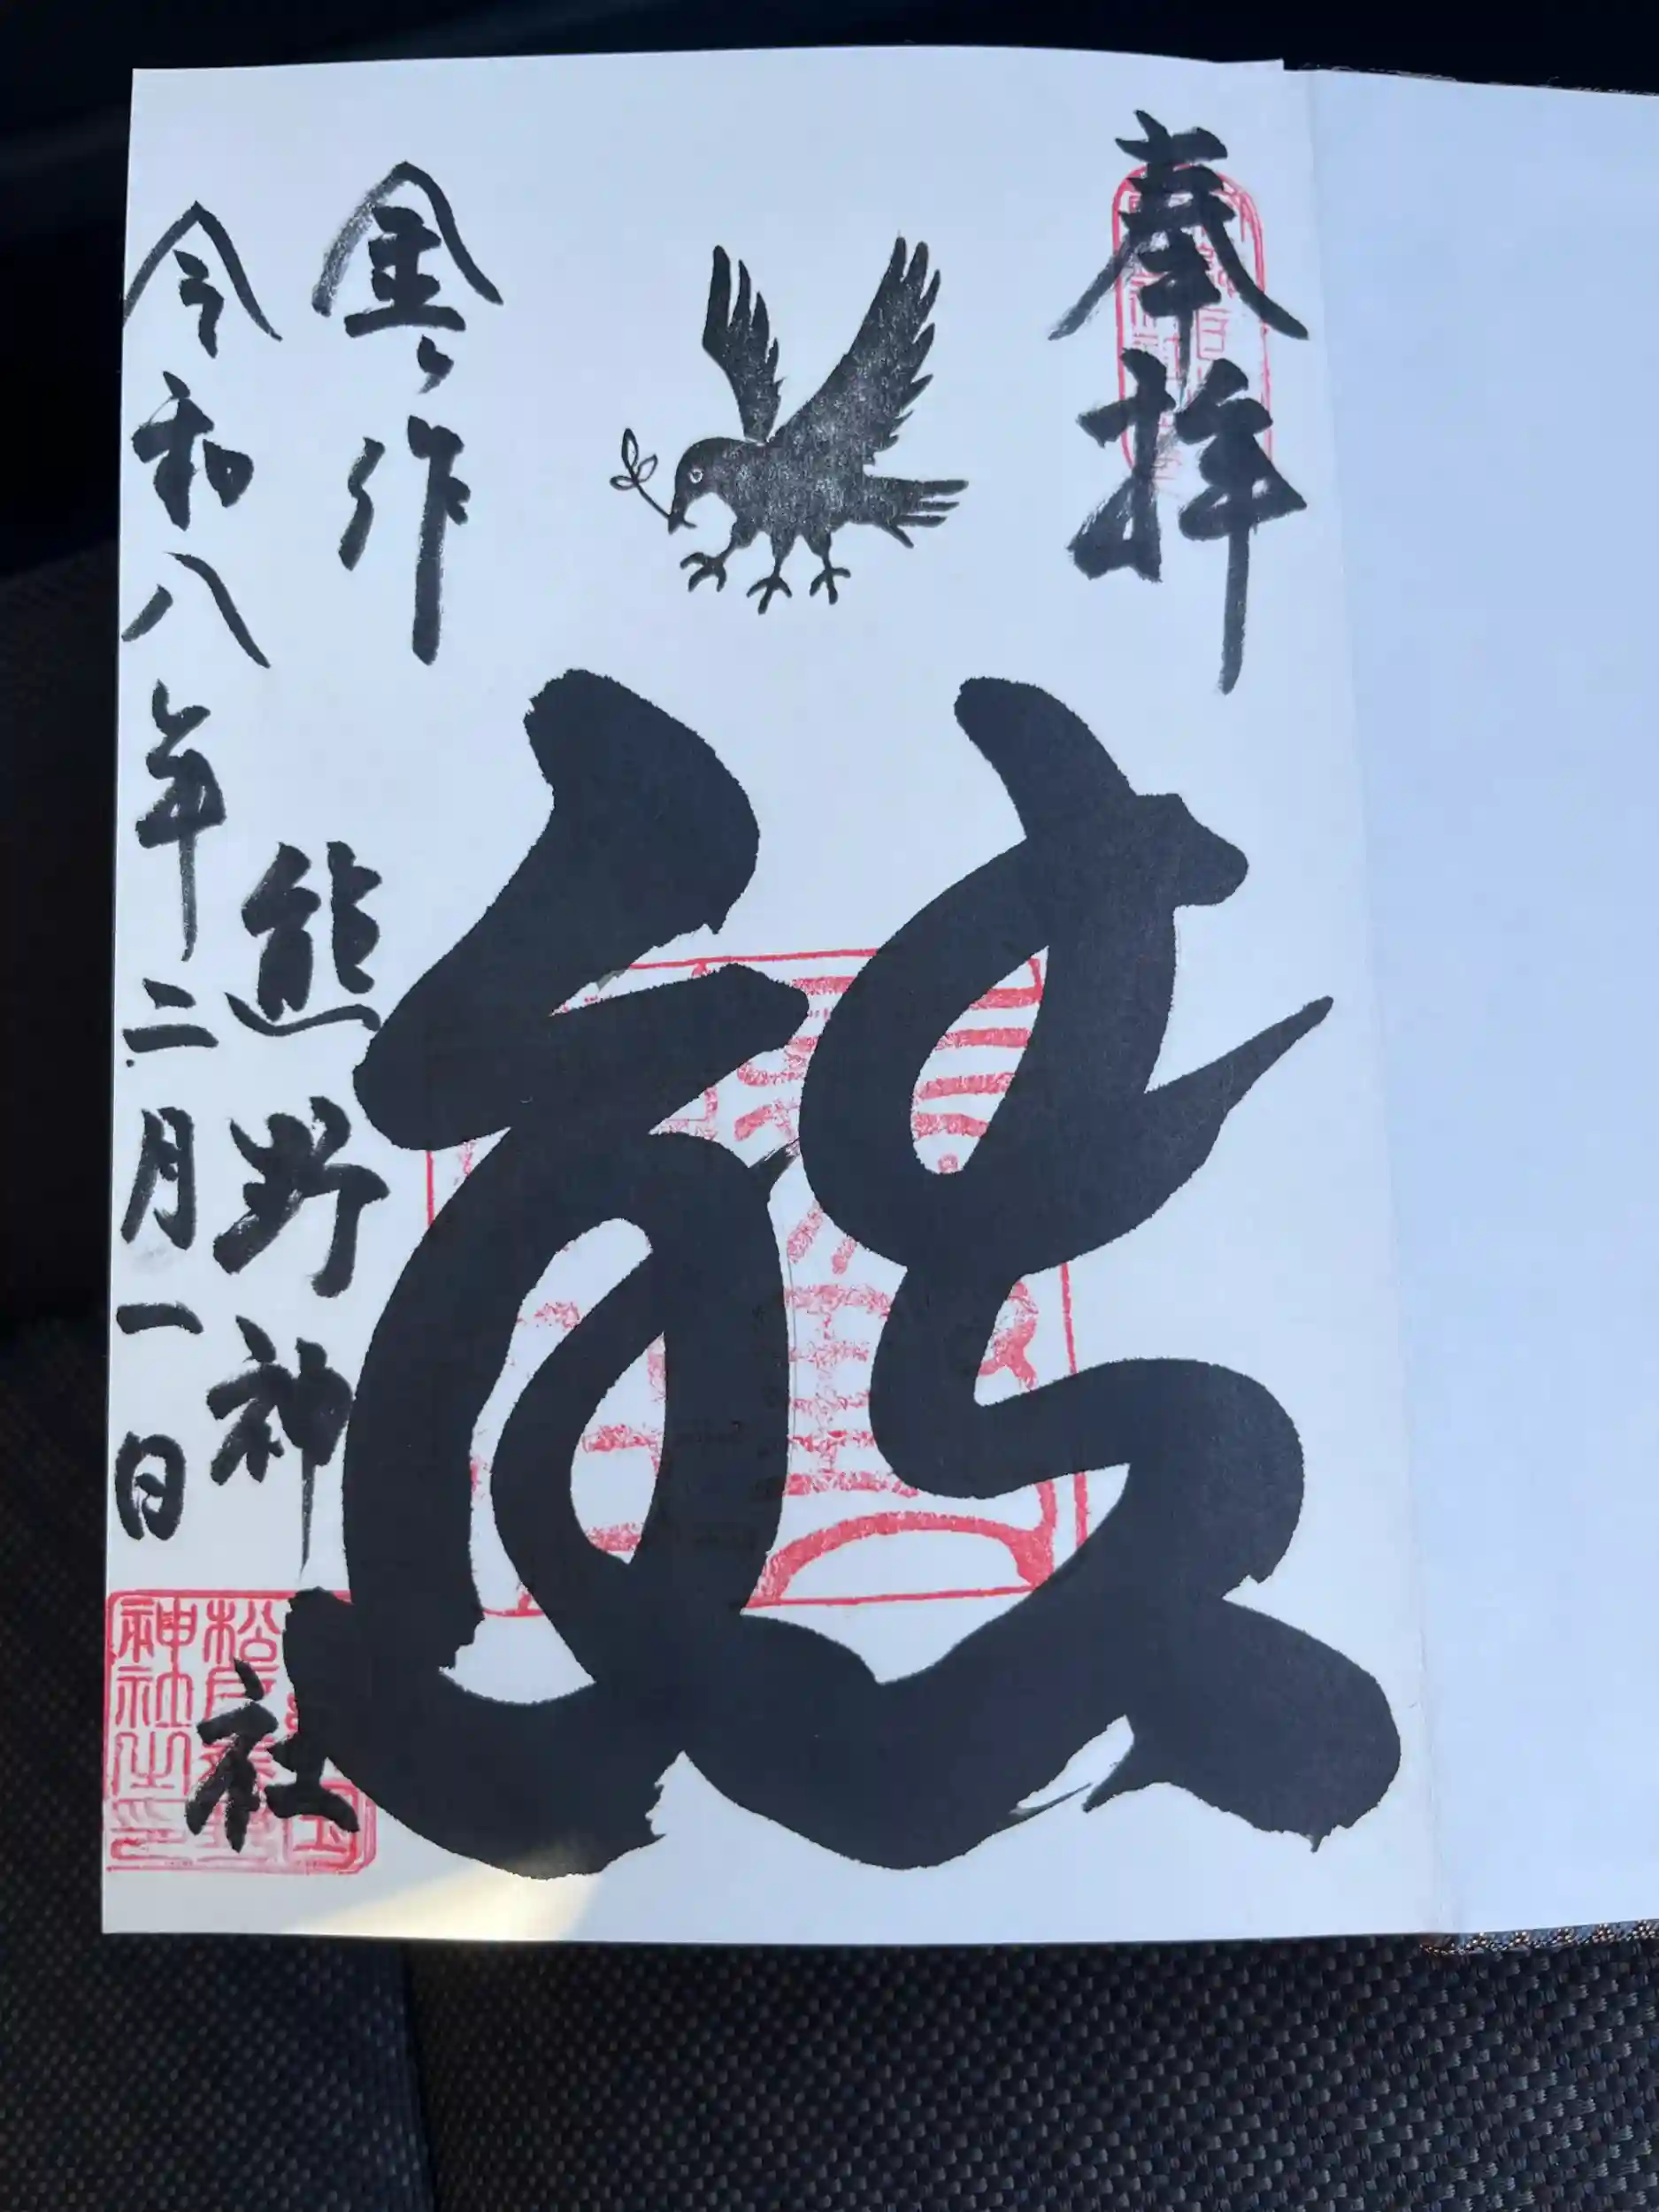 奉拝
熊
金ヶ作
熊野神社
令和八年二月一日
神社之印